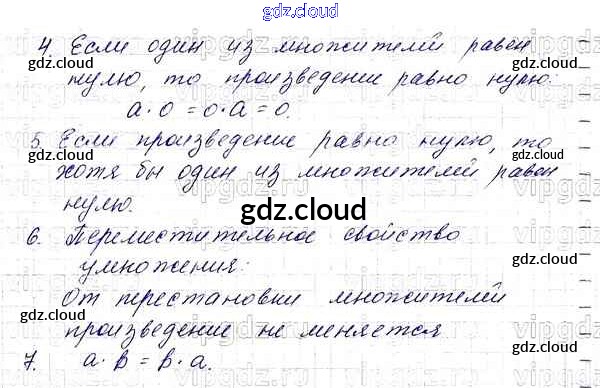 gdz.cloud
4. Если один из множителей равен
нулю, то произведение равно нулю:
a · 0 = 0 · a = 0.
5. Если произведение равно нулю, то
хотя бы один из множителей равен
нулю.
gdz.cloud
6. Переместительное свойство
умножения:
От перестановки множителей
произведение не меняется
7. a · b = b · a.
gdz.cloud
gdz.cloud
gdz.cloud
gdz.cloud
gdz.cloud
gdz.cloud
gdz.cloud
gdz.cloud